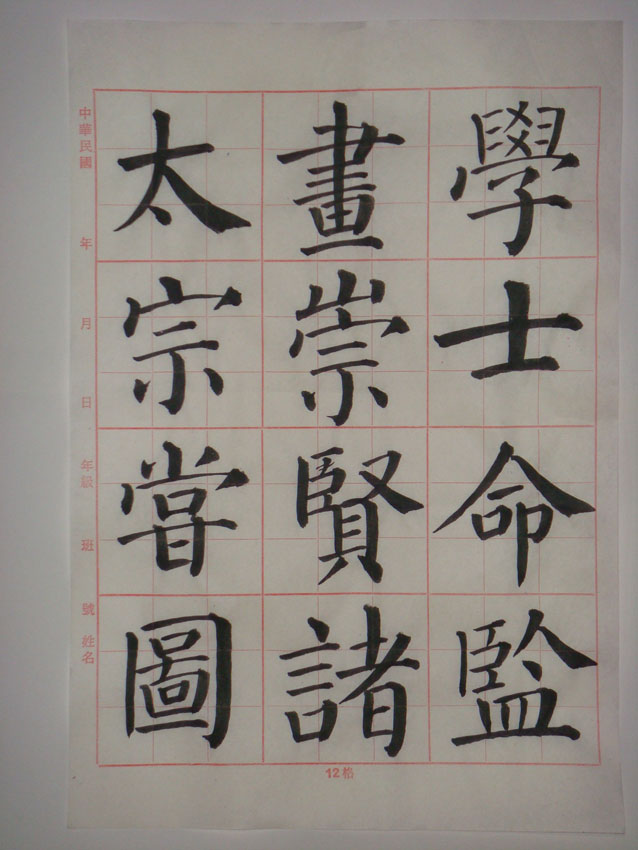 太宗嘗圖
畫崇賢諸
學士命監
中華民國 年 月 日 年級 班 號 姓名
12格